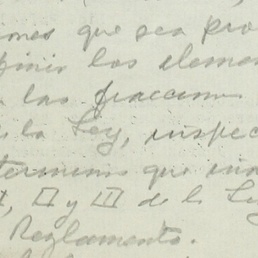 ones que sea pro
finir los elemen
las fraccion
la Ley, inspec
terminos que
I, II y III de la Ley
Reglamento.